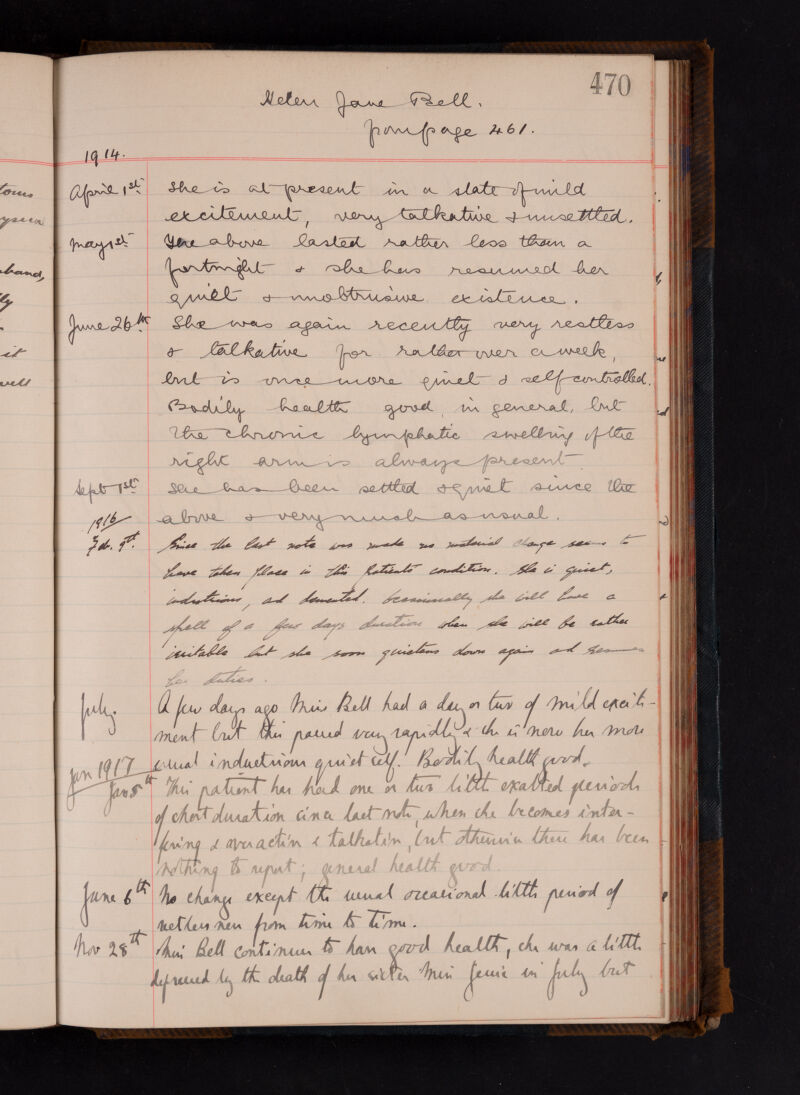 470
Helen Jane Bell.
from page 461.
1914.
April 1st She is at present in a state of mild
excitement, very talkative & unsettled.
May 1st The above lasted rather less than a
fortnight & she has resumed her
quiet & unobtrusive existence.
June 26th She was again recently very restless
& talkative for rather over a week,
but is once more quiet & self controlled.
Bodily health good, in general, but
the chronic lymphatic swelling of the
right arm is always present.
Sept 1st She has been settled & quiet since the
above & very much as usual.
1916
Feb. 9th. Since the last note was made no material change seems to
have taken place in this patient's condition. She is quiet,
industrious, and demented. Occasionally she will have a
spell of a few days duration when she will be rather
irritable but she soon quietens down again and resumes
her duties.
July. A few days ago Miss Bell had a day or two of mild excite-
ment but this passed very rapidly & she is now her more
usual industrious quiet self. Bodily health good.
Jan 1917
Jan 8th This patient has had one or two little exalted periods
of short duration since last note, when she becomes inter-
fering & overactive & talkative, but otherwise there has been
nothing to report; general health good.
June 6th No change except the usual occasional little period of
restlessness from time to time.
Nov 28th Miss Bell continues to have good health, she was a little
depressed by the death of her sister Miss Jessie in July but